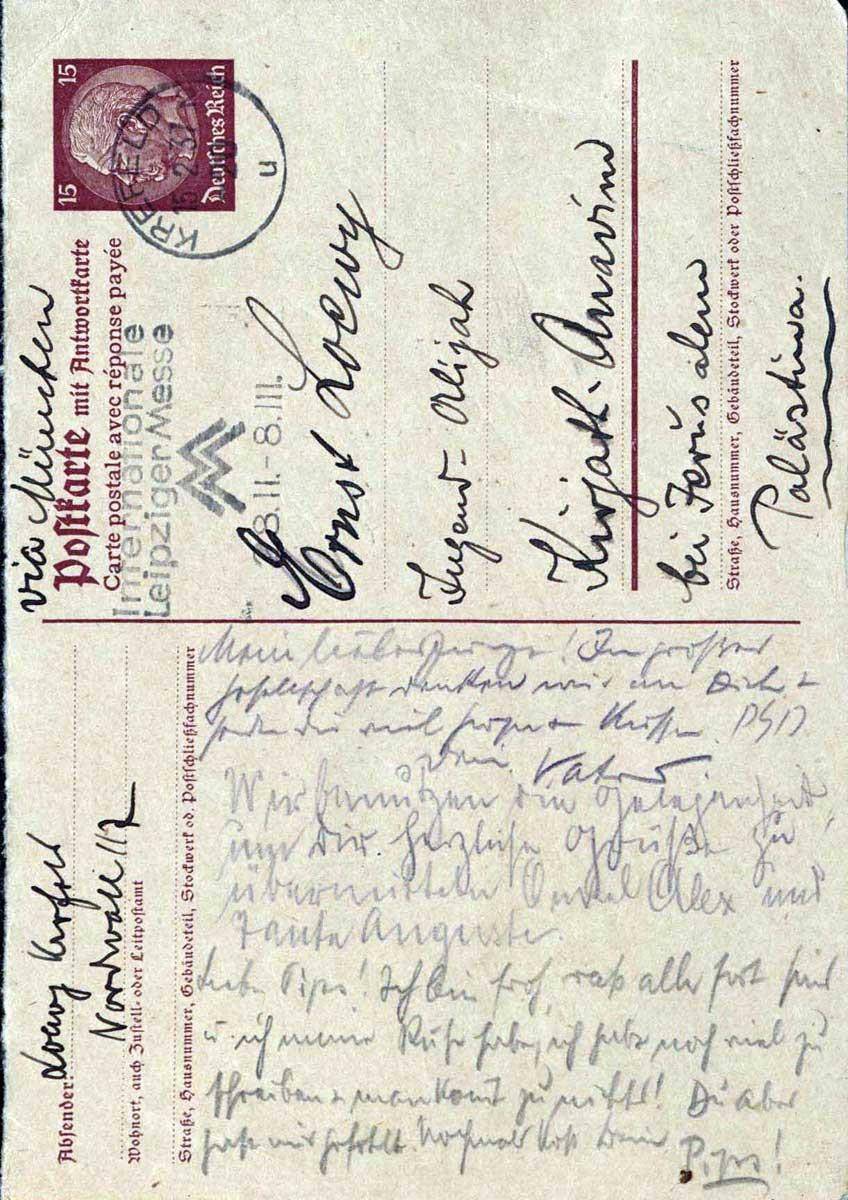 via München
Postkarte mit Antwortkarte
Carte postale avec réponse payée
15 15
Deutsches Reich
KREFELD
15.2.37
20
u
Internationale
Leipziger Messe
28.II.-8.III.
Ernst Loewy
Jugend-Alijah
Kirjath-Anavim
bei Jerusalem
Straße, Hausnummer, Gebäudeteil, Stockwerk oder Postschließfachnummer
Palästina.
Absender: Loewy Krefeld
Nordwall 117
Wohnort, auch Zustell- oder Leitpostamt
Straße, Hausnummer, Gebäudeteil, Stockwerk od. Postschließfachnummer
Mein lieber Junge! In großer
Gesellschaft denken wir an Dich +
senden dir viel Grüße + Küsse.
Dein Vater
Wir benützen die Gelegenheit,
um dir herzliche Grüße zu
übermitteln Onkel Alex und
Tante Auguste.
Liebe Pips! Ich bin froh, daß alle fort sind
u. ich meine Ruhe habe, ich habe noch viel zu
schreiben + man kommt zu nichts! Du aber
hast mir gefehlt. Nochmals Kuß Deine Pips!